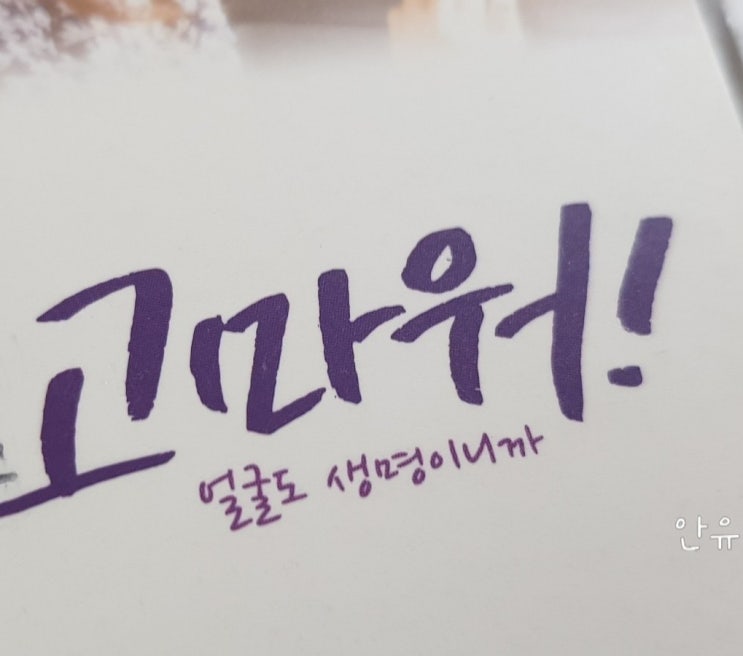 고마워!
얼굴도 생명이니까
안유